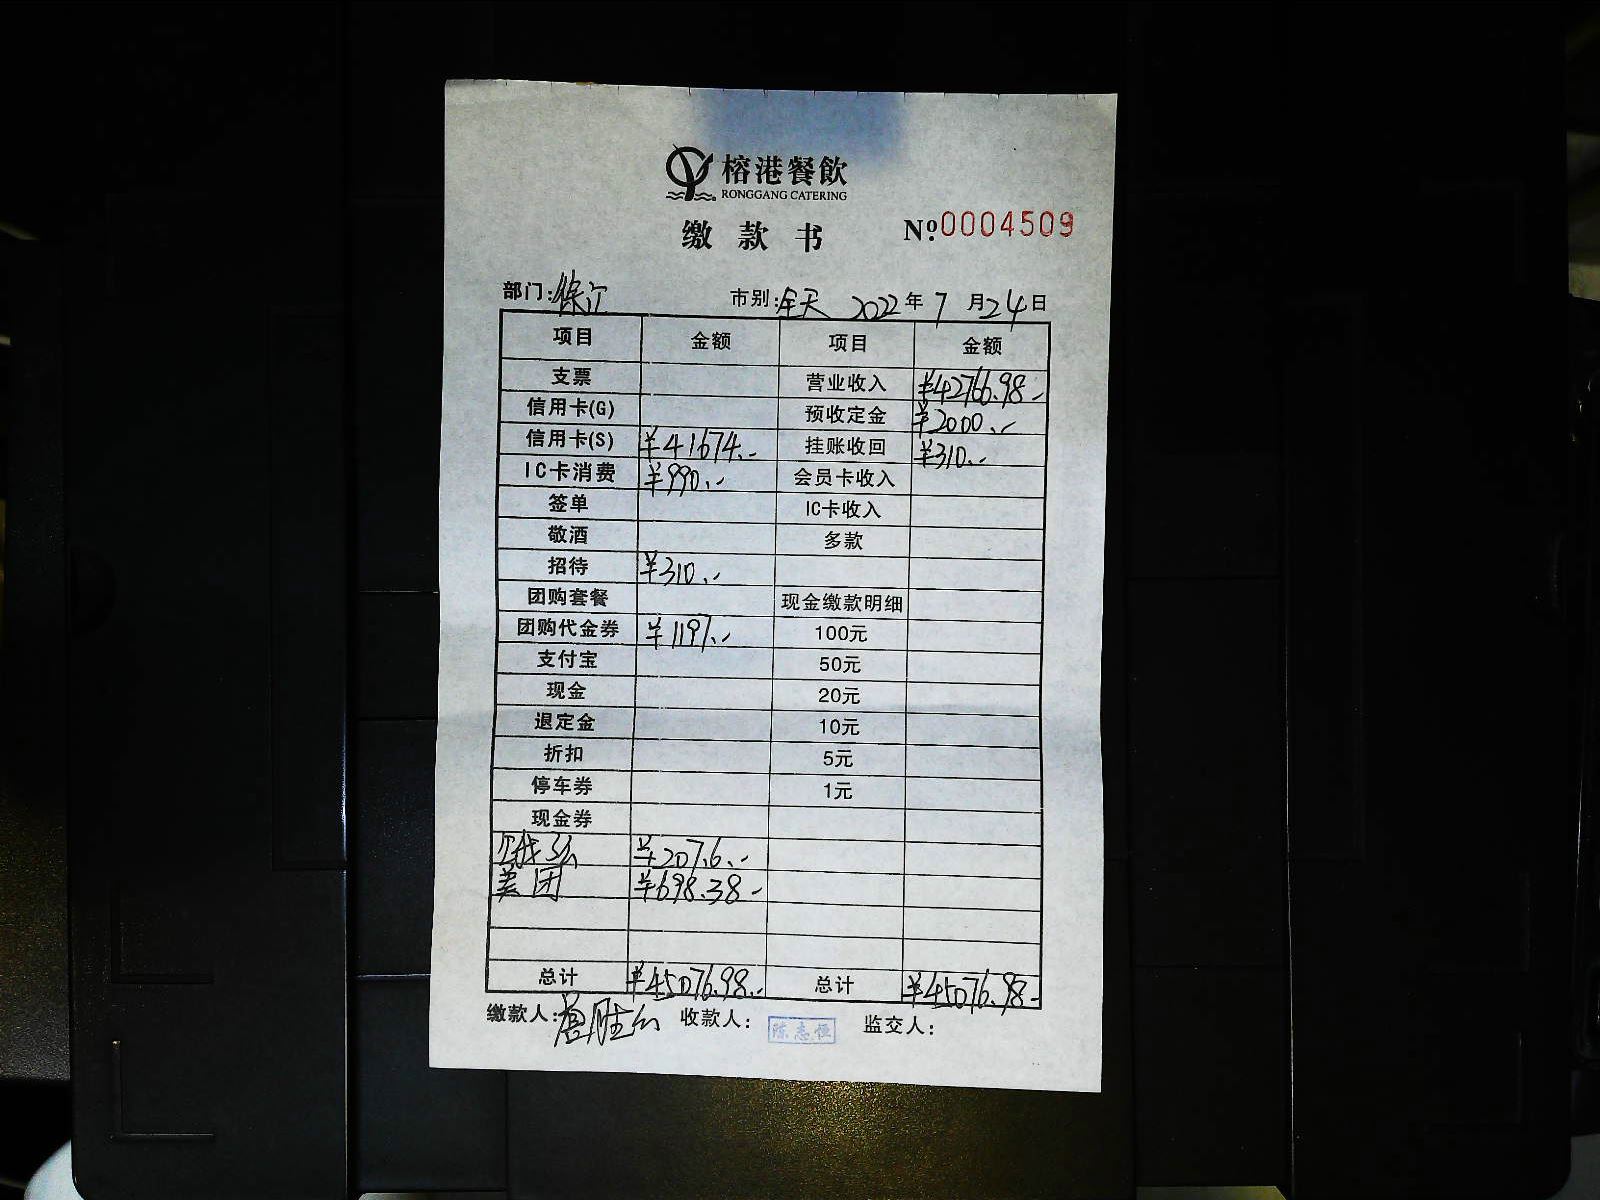 榕港餐飲
RONGGANG CATERING
缴款书 Nº.0004509
部门: 市别:全天 2022年7月24日
项目 金额 项目 金额
支票 营业收入 ¥42766.98-
信用卡(G) 预收定金 ¥2000.-
信用卡(S) ¥41674.- 挂账收回 ¥310.-
IC卡消费 ¥990.- 会员卡收入
签单 IC卡收入
敬酒 多款
招待 ¥310.-
团购套餐 现金缴款明细
团购代金券 ¥1197.- 100元
支付宝 50元
现金 20元
退定金 10元
折扣 5元
停车券 1元
现金券
饿了么 ¥207.6.-
美团 ¥698.38-
总计 ¥45076.98.- 总计 ¥45076.98-
缴款人: 收款人: 陈志恒 监交人: